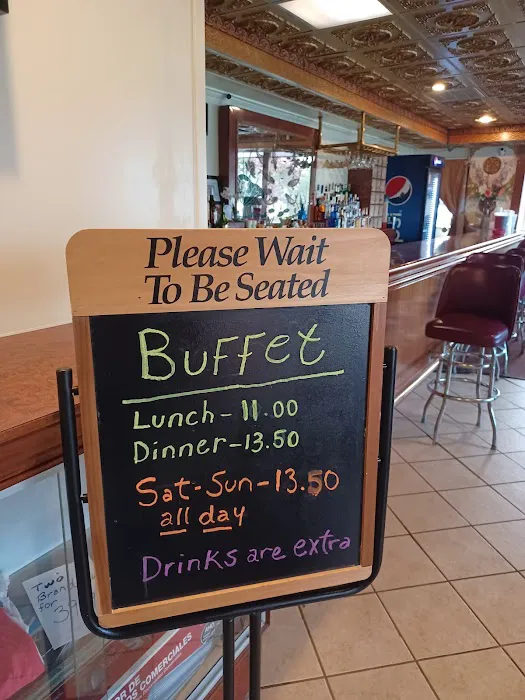 Please Wait
To Be Seated
Buffet
Lunch - 11.00
Dinner - 13.50
Sat - Sun - 13.50
all day
Drinks are extra
pepsi
Two
for
DE
COMERCIALES